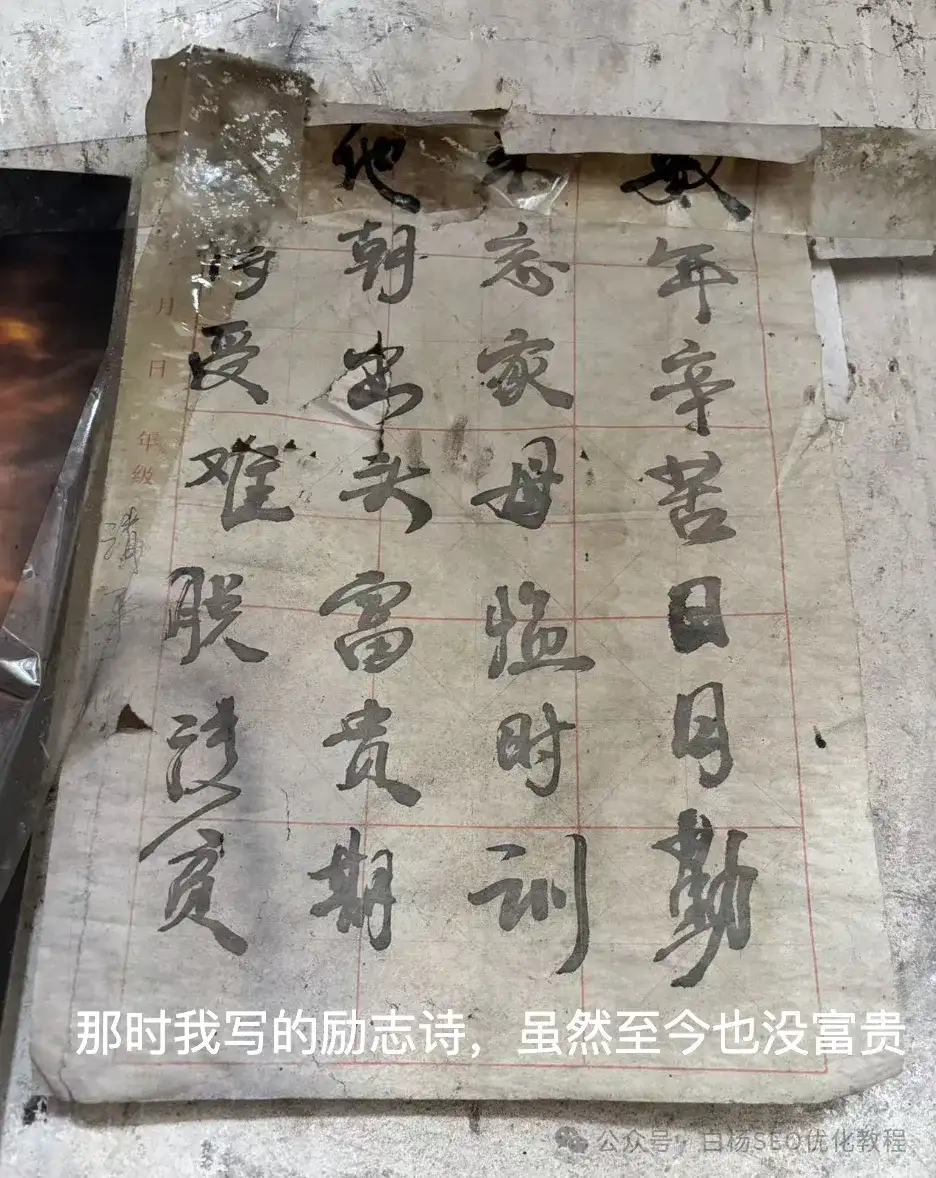 数年辛苦日月勤
忘家母临时训
他朝出头富贵期
受难脱清贫
月
日
年级
那时我写的励志诗，虽然至今也没富贵
公众号·白杨SEO优化教程